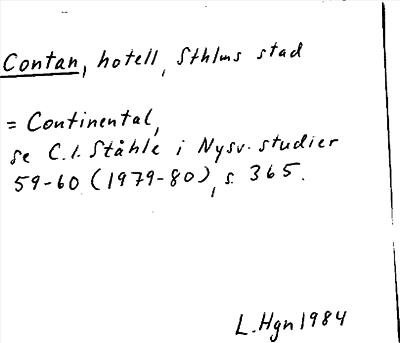 Contan, hotell, Sthlms stad
= Continental,
se C.I. Ståhle i Nysv. studier
59-60 (1979-80), s. 365.
L. Hgn 1984